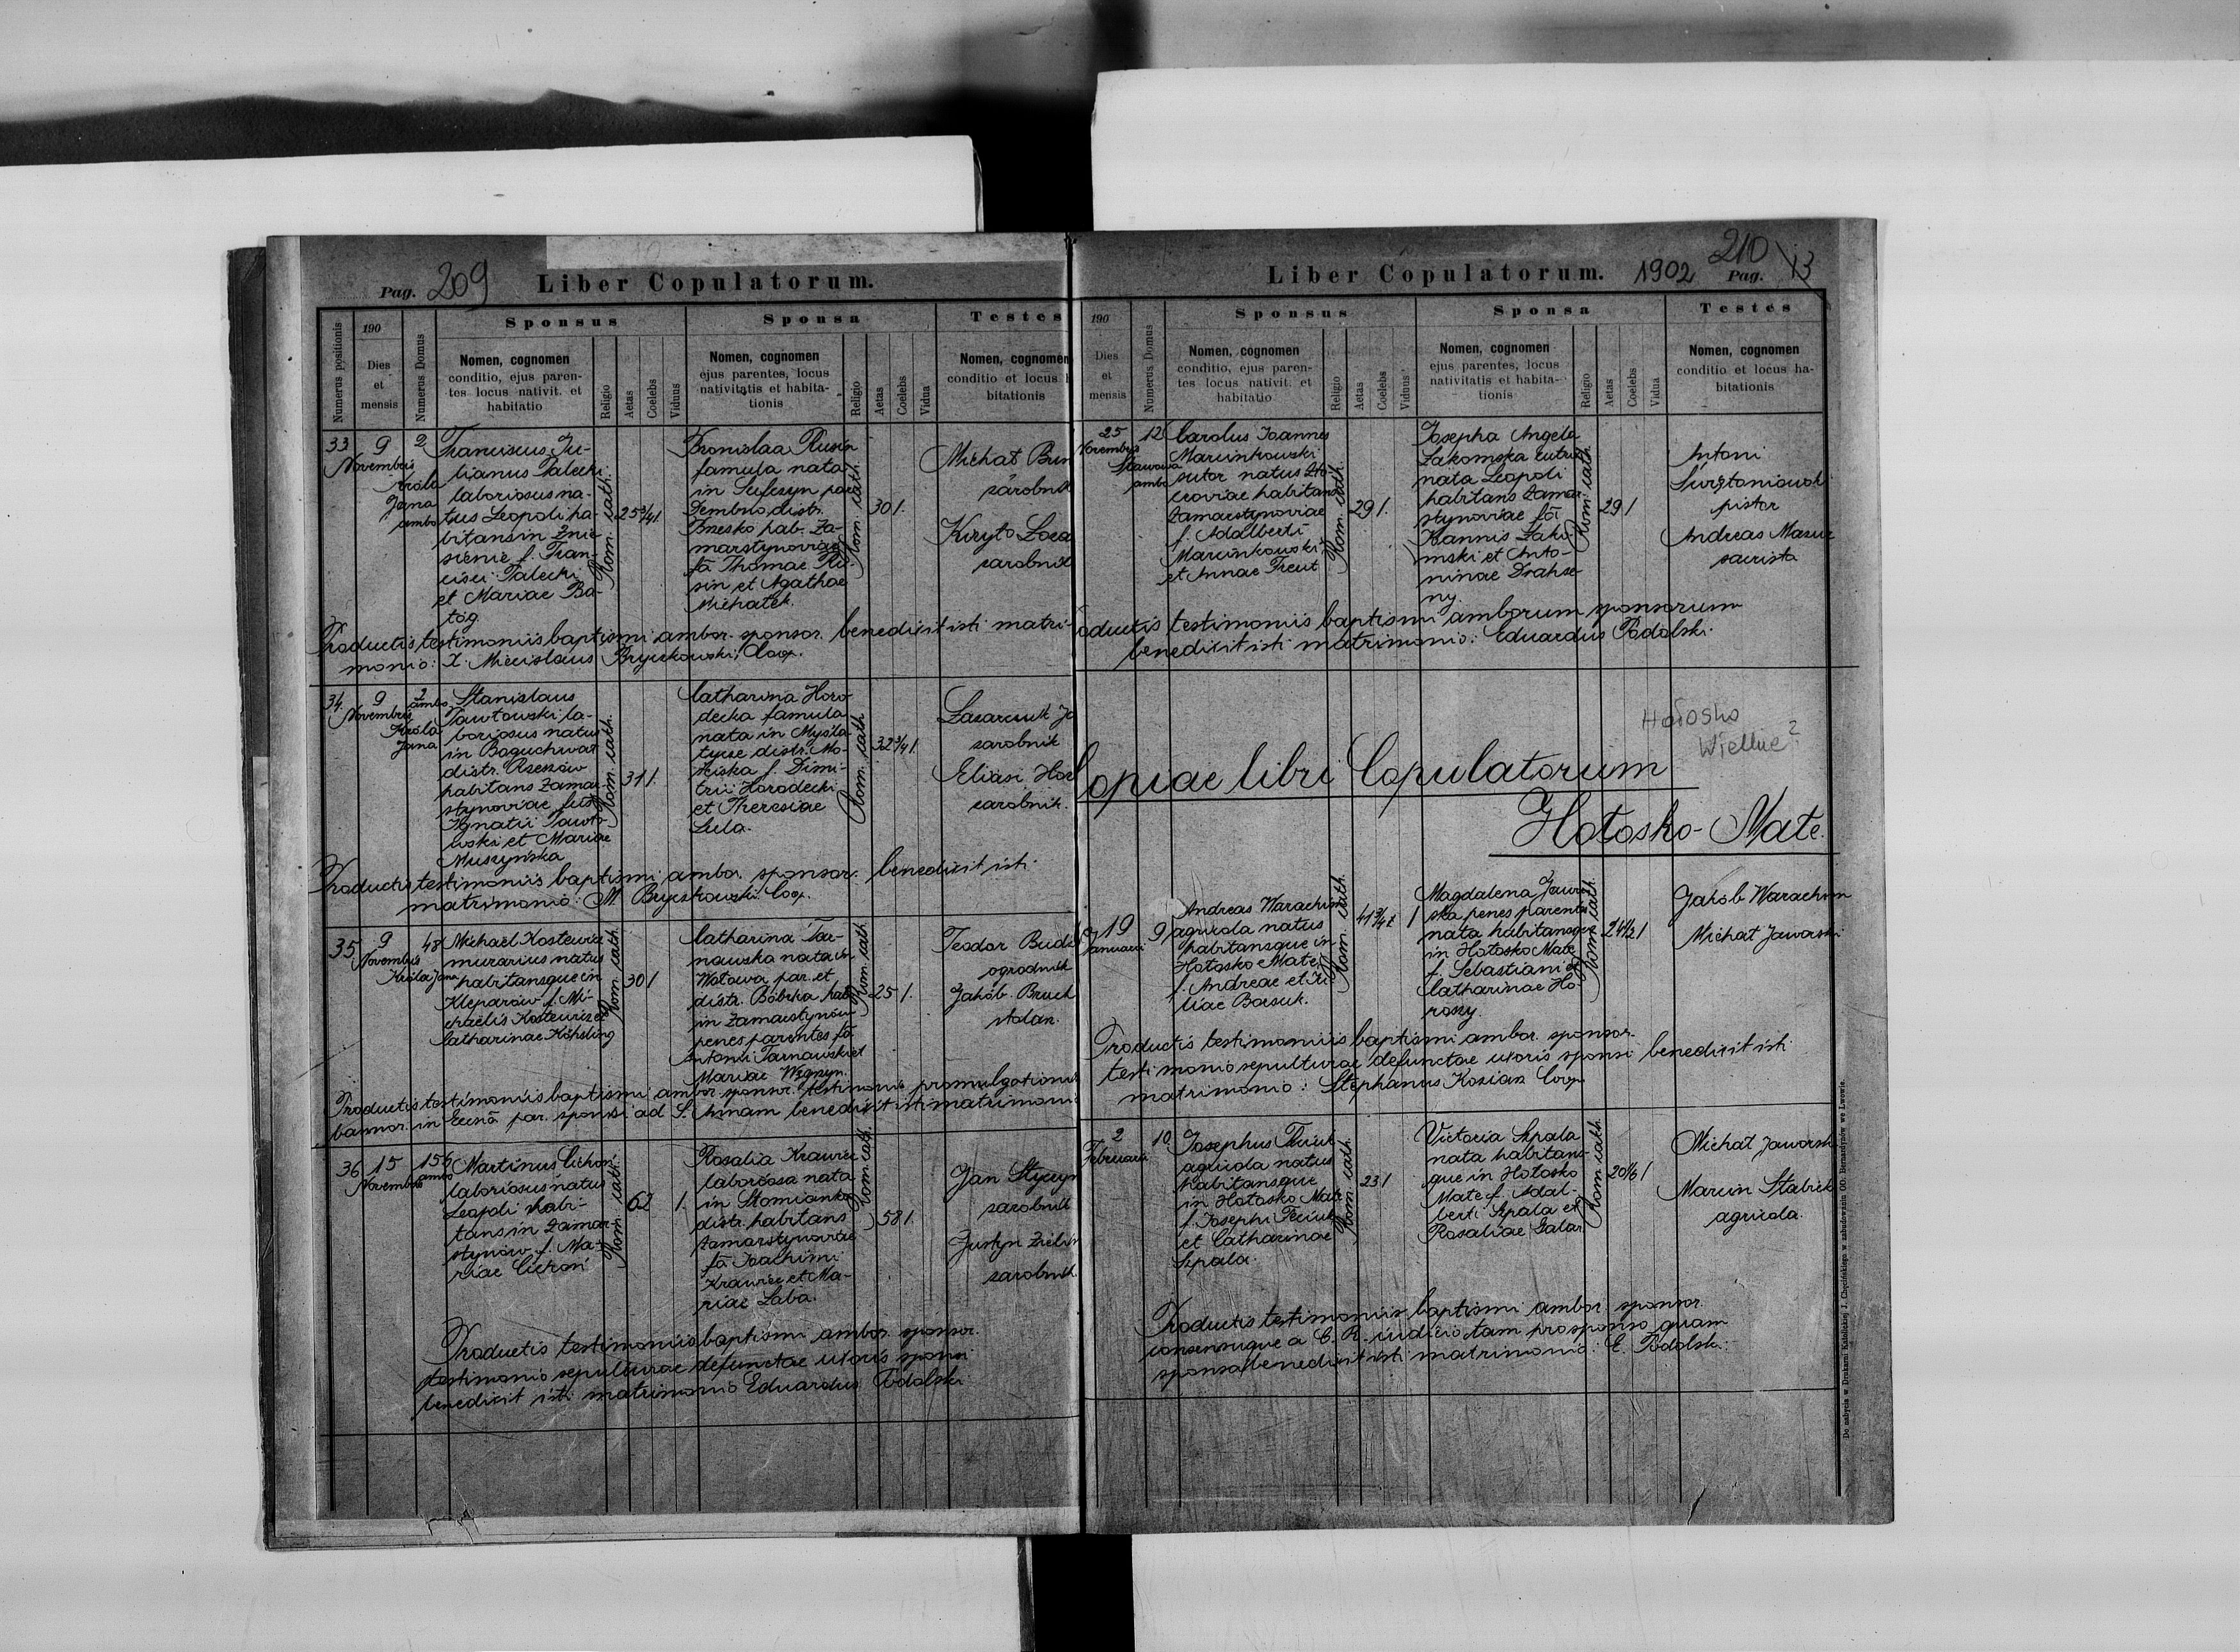 Pag. 209
Liber Copulatorum.
Numerus positionis
190
Dies
et
mensis
Numerus Domus
Sponsus
Nomen, cognomen
conditio, ejus paren-
tes locus nativit. et
habitatio
Religio
Aetas
Coelebs
Viduus
Sponsa
Nomen, cognomen
ejus parentes, locus
nativitatis et habita-
tionis
Religio
Aetas
Coelebs
Vidua
Testes
Nomen, cognomen
conditio et locus h
bitationis
33
9
Novembris
Króla
Jana
ambo
2
Franciscus Ju-
lianus Palecki
laboriosus na-
tus Leopoli ha-
bitans in Znie-
sienie f. Fran-
cisci Palecki
et Mariae Ba-
tóg
Rom. cath.
25 3/4 1.
Bronislaa Rusin
famula nata
in Sufczyn par.
Dembno distr.
Brzesko hab. Za-
marstynoviae
fa Thomae Ru-
sin et Agathae
Michałek.
Rom. cath.
30 1.
Michał Bun
zarobnik
Kiryło
zarobnik
Productis testimoniis baptismi ambor. sponsor. benedixit isti matri-
monio: X. Miecislaus Bryczkowski, Coop.
34.
9
Novembris
Króla
Jana
2
ambo
Stanislaus
Pawłowski la-
boriosus natus
in Boguchwał
distr. Rzeszów
habitans Zamar-
stynoviae filius
Ignatii Pawło-
wski et Mariae
Muszyńska
Rom. cath.
31 1.
Catharina Horo-
decka famula
nata in Myśla-
tycze distr. Mo-
ściska f. Dimi-
trii Horodecki
et Theresiae
Lula.
Rom. cath.
32 3/4 1.
Łazarczuk Ja
zarobnik
Eliasi Hor
zarobnik.
Productis testimoniis baptismi ambor. sponsor. benedixit isti
matrimonio: M. Bryczkowski Coop.
35
9
Novembris
Króla Jana
48
Michaël Kostewicz
murarius natus
habitansque in
Kleparów f. Mi-
chaëlis Kostewicz et
Catharinae
Rom. cath.
30 1
Catharina Tar-
nawska nata in
Wołowa par. et
distr. Bóbrka hab.
in Zamarstynów
penes parentes fa
Antonii Tarnawski et
Mariae Węgrzyn.
Rom. cath.
25 1.
Teodor Bud
ogrodnik
Jakób Bruch
stolarz.
Productis testimoniis baptismi ambor. sponsor. testimonio promulgationis
bannor. in Eccsa par. sponsi ad S. Annam benedixit isti matrimoni
36
15
Novembris
156
ambo
Martinus Cichoń
laboriosus natus
Leopoli habi-
tans in Zamar-
stynów f. Ma-
riae Cichoń
Rom. cath.
62 1.
Rosalia Krawiec
laboriosa nata
in Słomianka
distr. habitans
Zamarstynoviae
fa Joachimi
Krawiec et Ma-
riae Łaba.
Rom. cath.
58 1.
Jan Styczyn
zarobnik
Justyn Zielin
zarobnik
Productis testimoniis baptismi ambor. sponsor.
testimonio sepulturae defunctae uxoris sponsi
benedixit isti matrimonio Eduardus Podolski
Liber Copulatorum.
1902
210
Pag.
13
190
Dies
et
mensis
Numerus Domus
Sponsus
Nomen, cognomen
conditio, ejus paren-
tes locus nativit. et
habitatio
Religio
Aetas
Coelebs
Viduus
Sponsa
Nomen, cognomen
ejus parentes, locus
nativitatis et habita-
tionis
Religio
Aetas
Coelebs
Vidua
Testes
Nomen, cognomen
conditio et locus ha-
bitationis
25
Novembris
Stawowa
ambo
12
Carolus Joannes
Marcinkowski
sutor natus
habitans
Zamarstynoviae
f. Adalberti
Marcinkowski
et Annae Freut
Rom. cath.
29 1.
Josepha Angela
Zakomska
nata Leopoli
habitans Zamar-
stynoviae fa
Joannis Zako-
mski et Anto-
ninae
ny.
Rom. cath.
29 1
Antoni
pistor
Andreas Mazur
sacrista
oductis testimoniis baptismi amborum sponsorum
benedixit isti matrimonio: Eduardus Podolski.
Hołosko
Wielkie?
Copiae libri Copulatorum
Hołosko-Małe.
19
Januarii
9
Andreas Warachim
agricola natus
habitansque in
Hołosko Małe
f. Andreae et Ju-
liae Borsuk.
Rom. cath.
41 3/4
1
Magdalena Jawor-
ska penes parentes
nata habitansque
in Hołosko Małe
f. Sebastiani et
Catharinae Ho-
roszy.
Rom. cath.
24 1/2 1
Jakób Warachim
Michał Jaworski
Productis testimoniis baptismi ambor. sponsor.
testimonio sepulturae defunctae uxoris sponsi benedixit isti
matrimonio: Stephanus Koziar Coop.
2
Februarii
10
Josephus
agricola natus
habitansque
in Hołosko Małe
f. Josephi
et Catharinae
Szpala.
Rom. cath.
23 1
Victoria Szpala
nata habitans-
que in Hołosko
Małe f. Adal-
berti Szpala et
Rosaliae Galar
Rom. cath.
20 1/6 1
Michał Jaworski
Marcin Stabick
agricola.
Productis testimoniis baptismi ambor. sponsor.
consensuque a C. R. iudicio tam pro sponso quam
sponsa benedixit isti matrimonio: E. Podolski.
Do nabycia w Drukarni Katolickiej J. Chęcińskiego w zabudowaniu OO. Bernardynów we Lwowie.